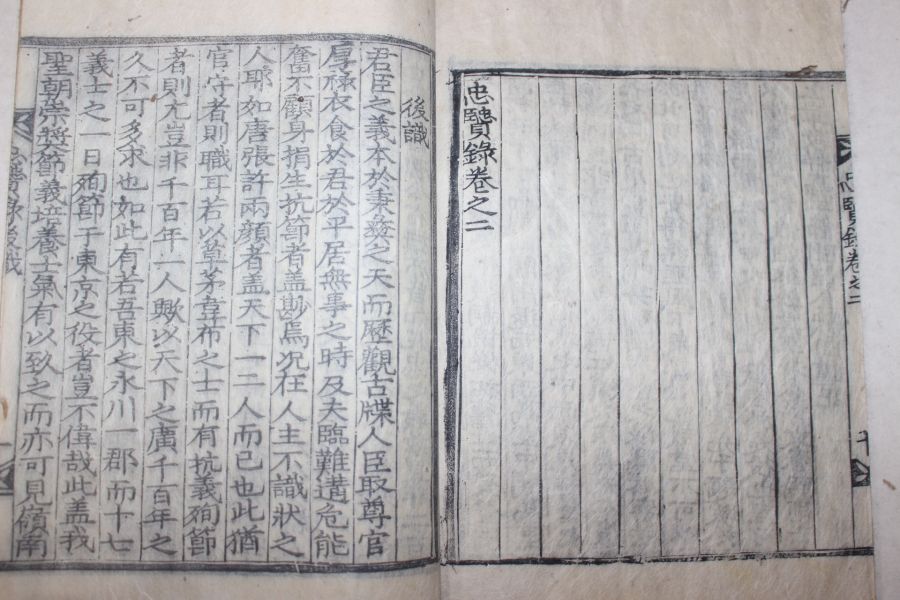 忠賢錄卷之二
忠賢錄卷之二
後識
君臣之義本於秉彛之天而歷觀古牒人臣取尊官
厚祿衣食於君於平居無事之時及夫臨難遘危能
奮不顧身捐生抗節者盖尠焉况在人主不識狀之
人耶如唐張許兩顔者盖天下一二人而已也此猶
官守者則職耳若以草茅韋布之士而有抗義殉節
者則尤豈非千百年一人歟以天下之廣千百年之
久不可多求也如此有若吾東之永川一郡而十七
義士之一日殉節于東京之役者豈不偉哉此盖我
聖朝崇奬節義培養士氣有以致之而亦可見嶺南
忠賢錄後識